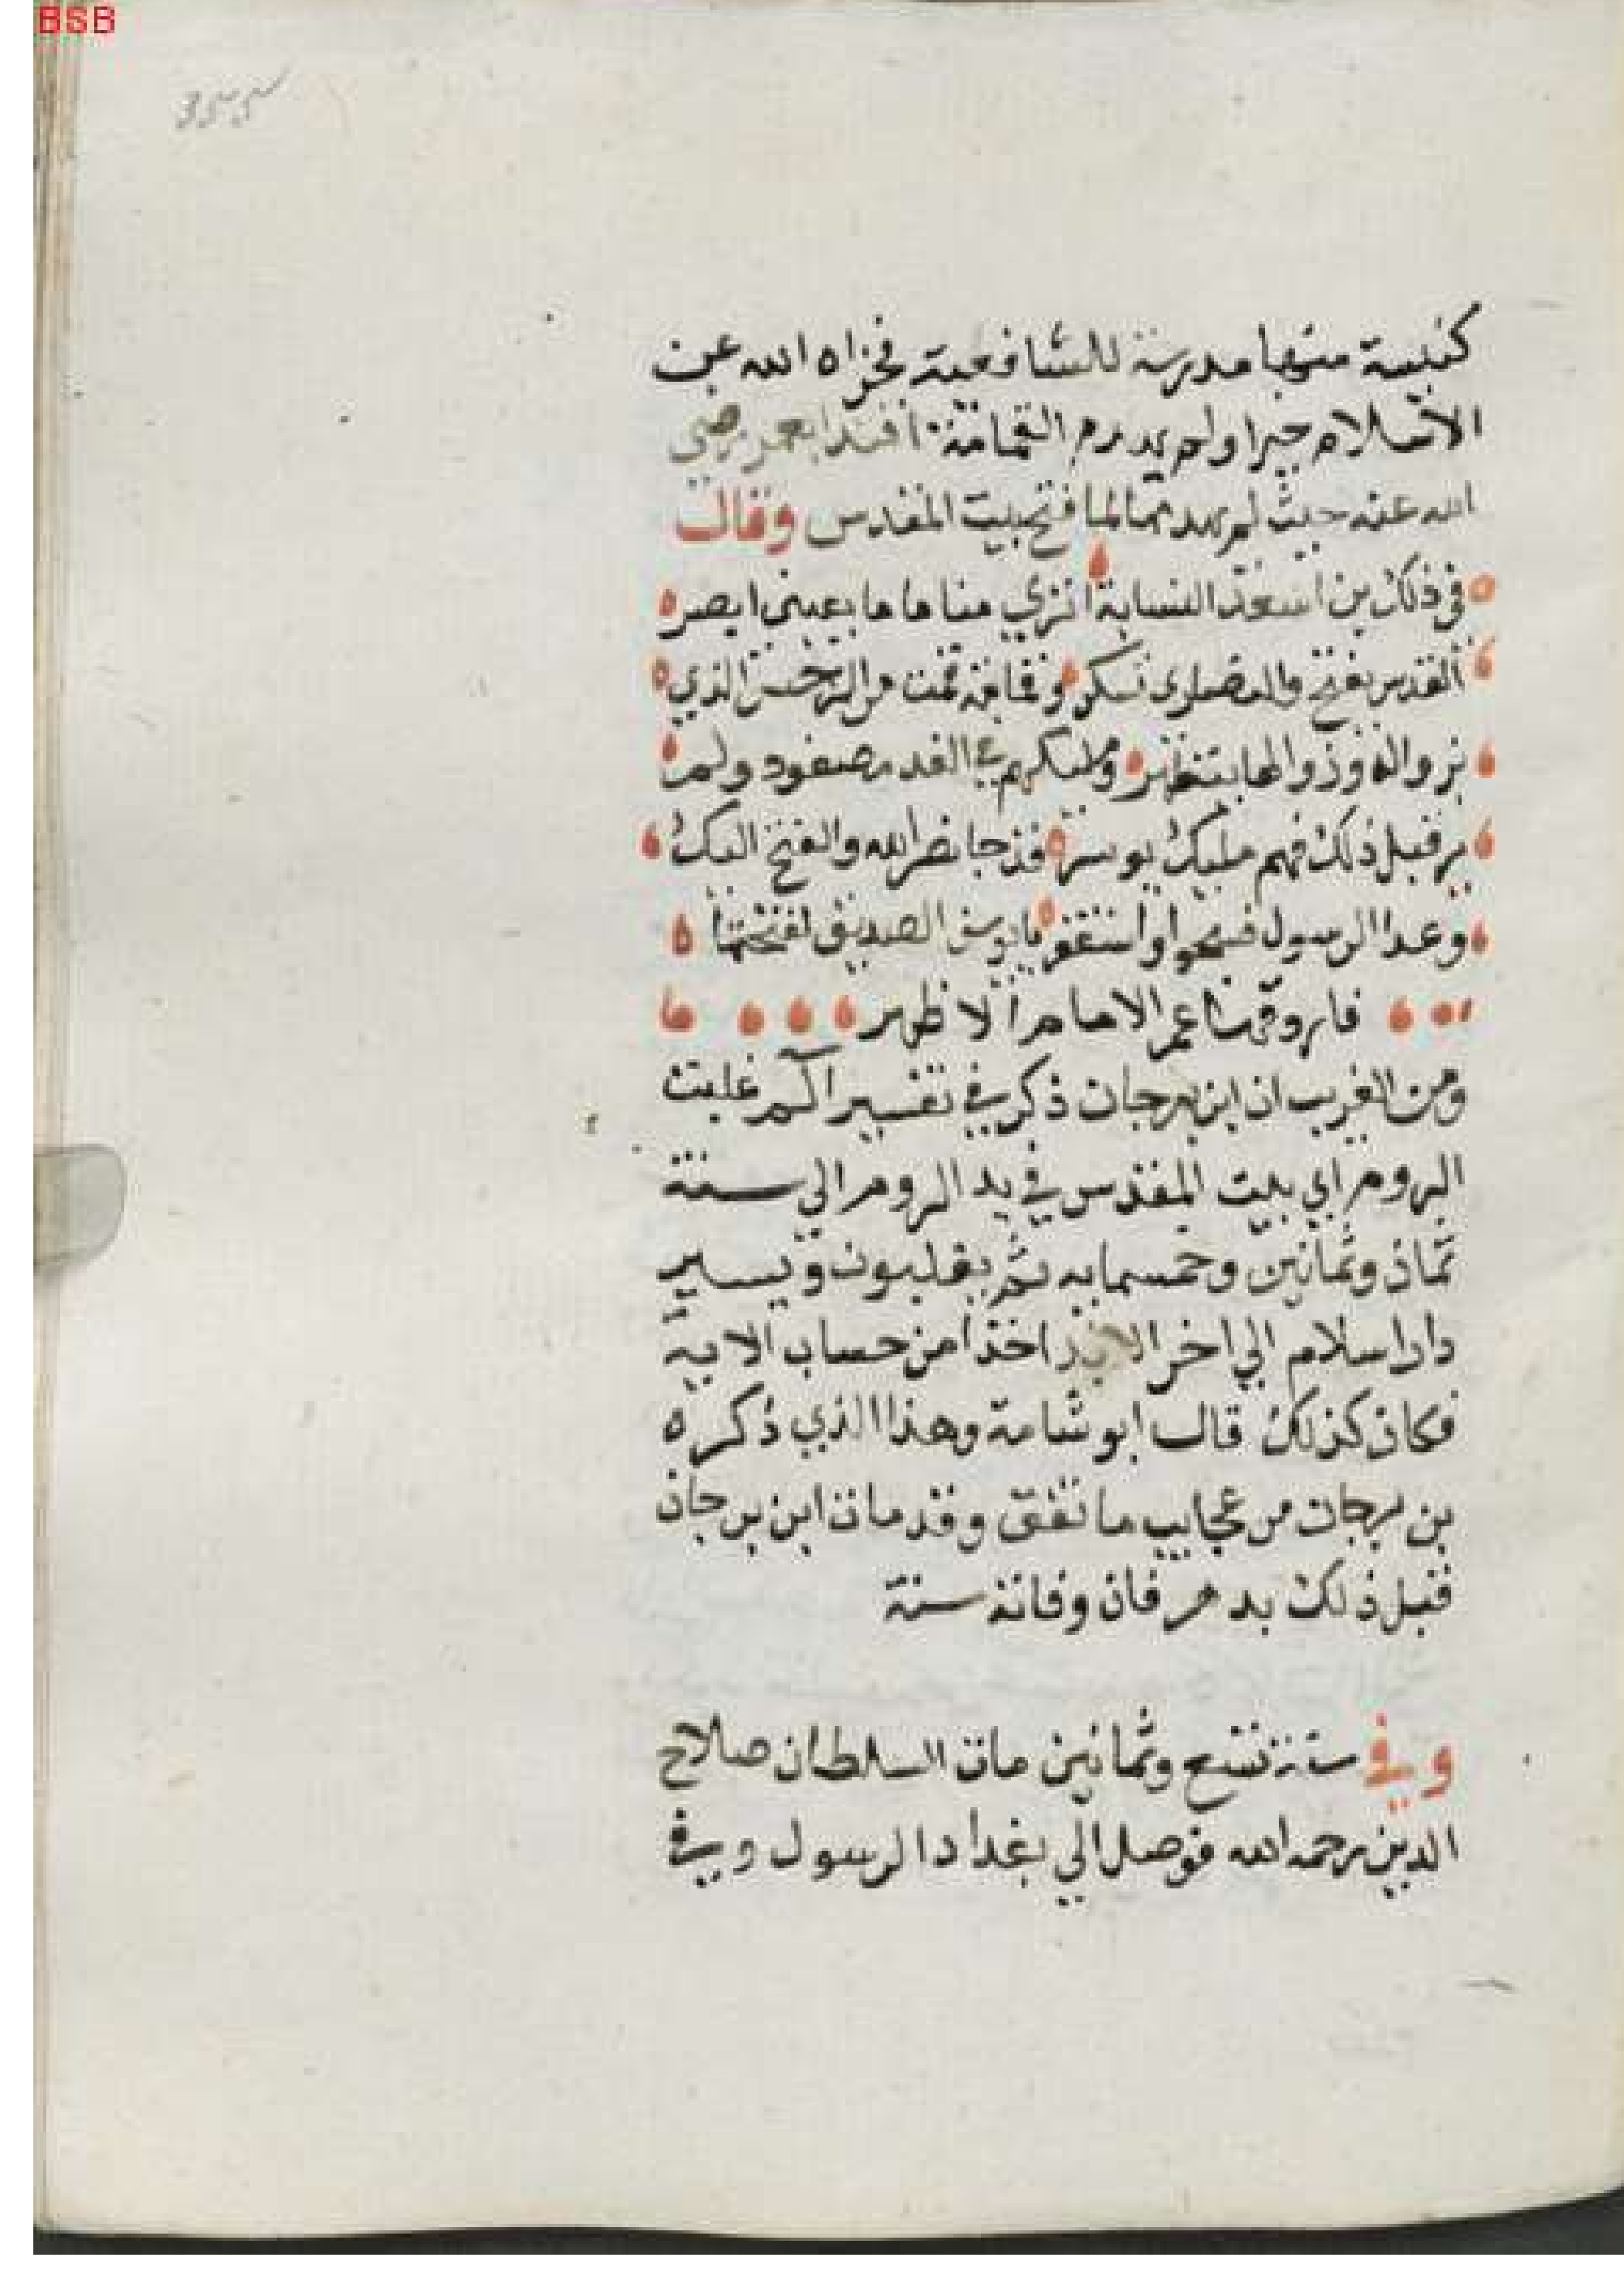 BSB
355
كنيسة منها مدرسة للشافعية فجزاه الله عن
الاسلام خيرا ولم يهدم القمامة اقتدا بعمر رضي
الله عنه حيث لم يهدمها لما فتح بيت المقدس وقال
في ذلك بن اسعد النسابة اتري مناما ما بعيني ابصر
القدس يفتح والنصاري تكسر وقمامة قمت من الرجس الذي
بزواله وزوالها يتطهر ومليكهم في القيد مصفود ولم
ير قبل ذلك فهم مليك يوسر قد جا نصر الله والفتح
وعد الرسول فسبحوا واستغفروا يا يوسف الصديق لفتحها
فاروقها عمر الامام الاطهر
ومن الغريب ان ابن برجان ذكر في تفسير الم غلبت
الروم اي بيت المقدس في يد الروم الي سنة
ثمان وثمانين وخمسمايه ثم يغلبون ويسير
دار اسلام الي اخر اخذا من حساب الايه
فكان كذلك قال ابو شامة وهذا الذي ذكره
بن برجان من عجايب ما تفق وقد مات ابن برجان
قبل ذلك بدهر فان وفاته سنة
وفي سنة تسع وثمانين مات السلطان صلاح
الدين رحمه الله فوصل الي بغداد الرسول وفي